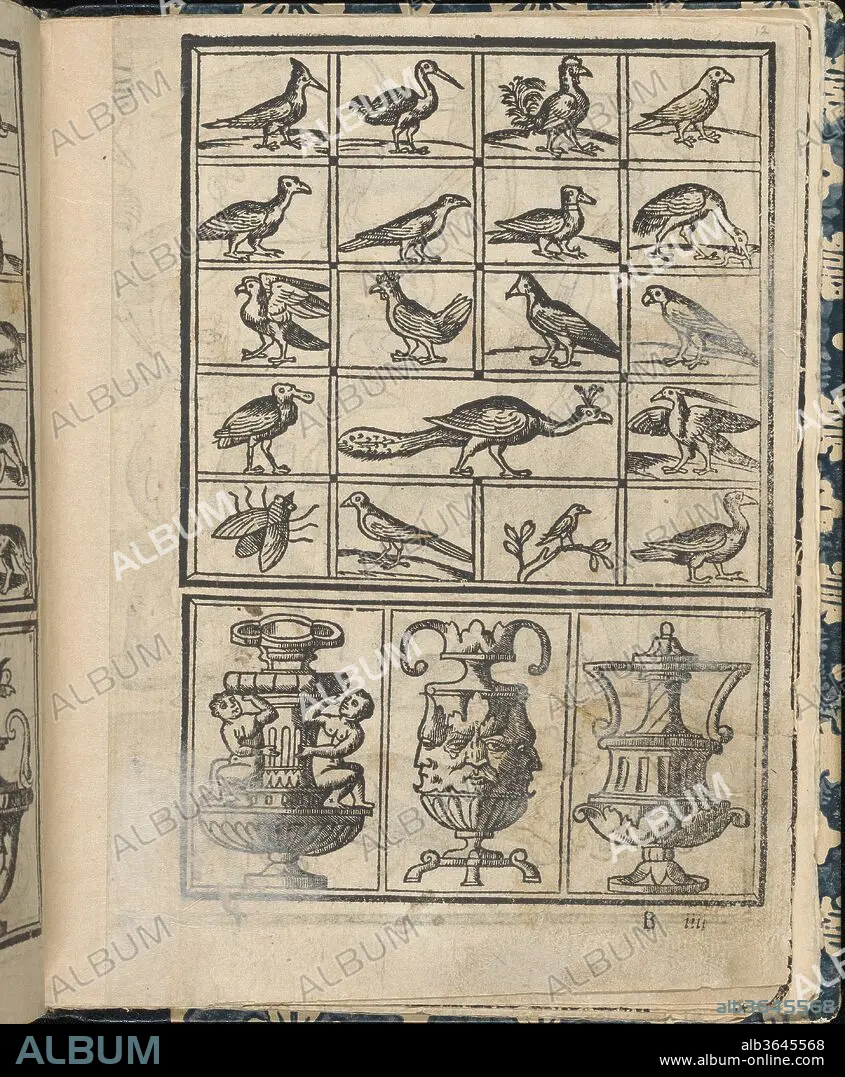 12
B iiii
ALBUM
alb3645568
ALBUM
alb3645568
www.album-online.com